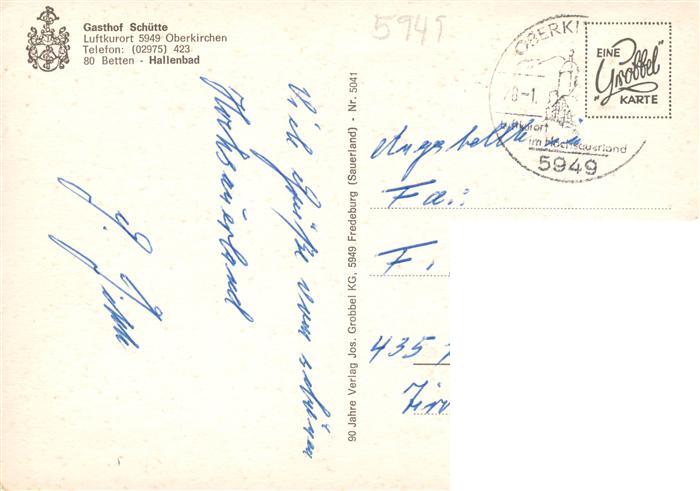 Gasthof Schütte
Luftkurort 5949 Oberkirchen
Telefon: (02975) 423
80 Betten - Hallenbad
5949
EINE
"Grobbel"
KARTE
OBERKI
-1.
Luftkurort
im Hochsauerland
5949
Viele Grüße vom schönen
Hochsauerland
90 Jahre Verlag Jos. Grobbel KG, 5949 Fredeburg (Sauerland) - Nr. 5041
Fa.
F.
435